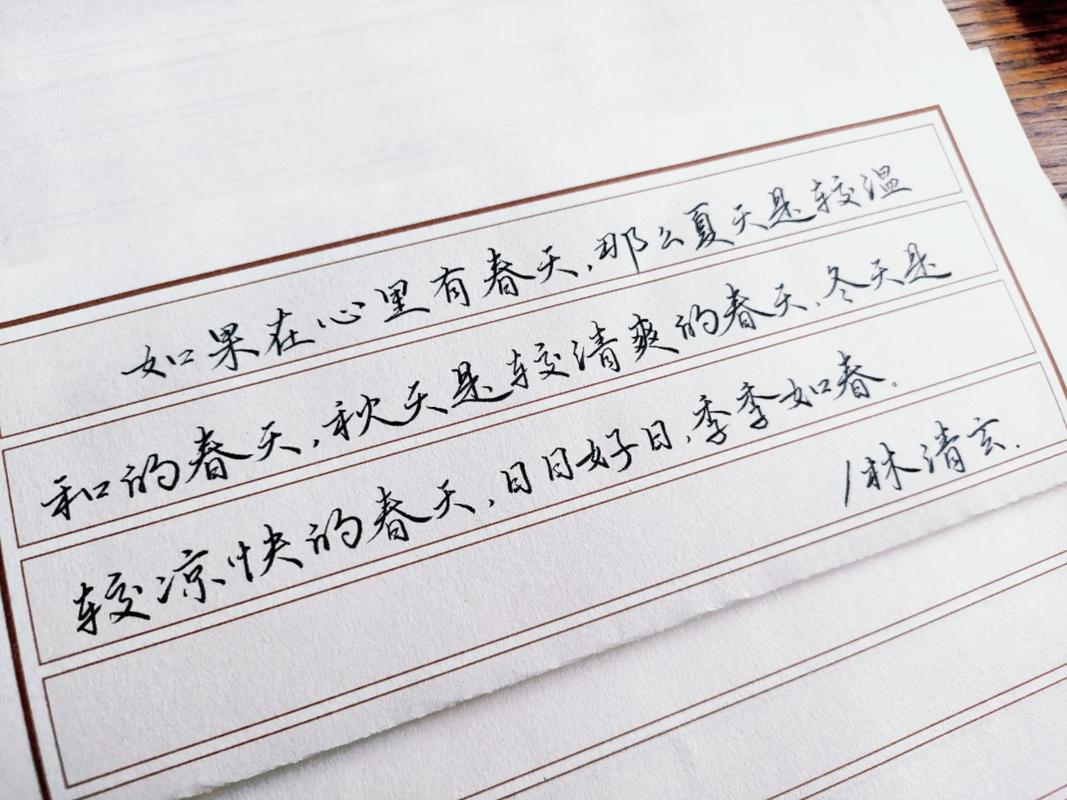 如果在心里有春天,那么夏天是较温
和的春天,秋天是较清爽的春天,冬天是
较凉快的春天,日日好日,季季如春.
/林清玄.